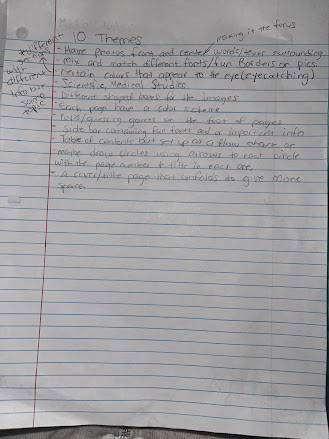 making it the focus
10 Themes
- Have photos front and center words/texts surrounding
- mix and match different fonts/fun Borders on pics
- certain colors that appear to the eye (eyecatching)
- Scientific, Medical Studies
- Different shaped boxes for the images
- Each page have a color scheme
- /guessing games on the foot of pages
- Side bar containing fun facts and or important info
- Table of contents but set up as a flow chart or
maybe draw circles using arrows to each circle
with the page number & title in each one.
- A cover/title page that unfolds to give more
space.
different
with
different
same
topic